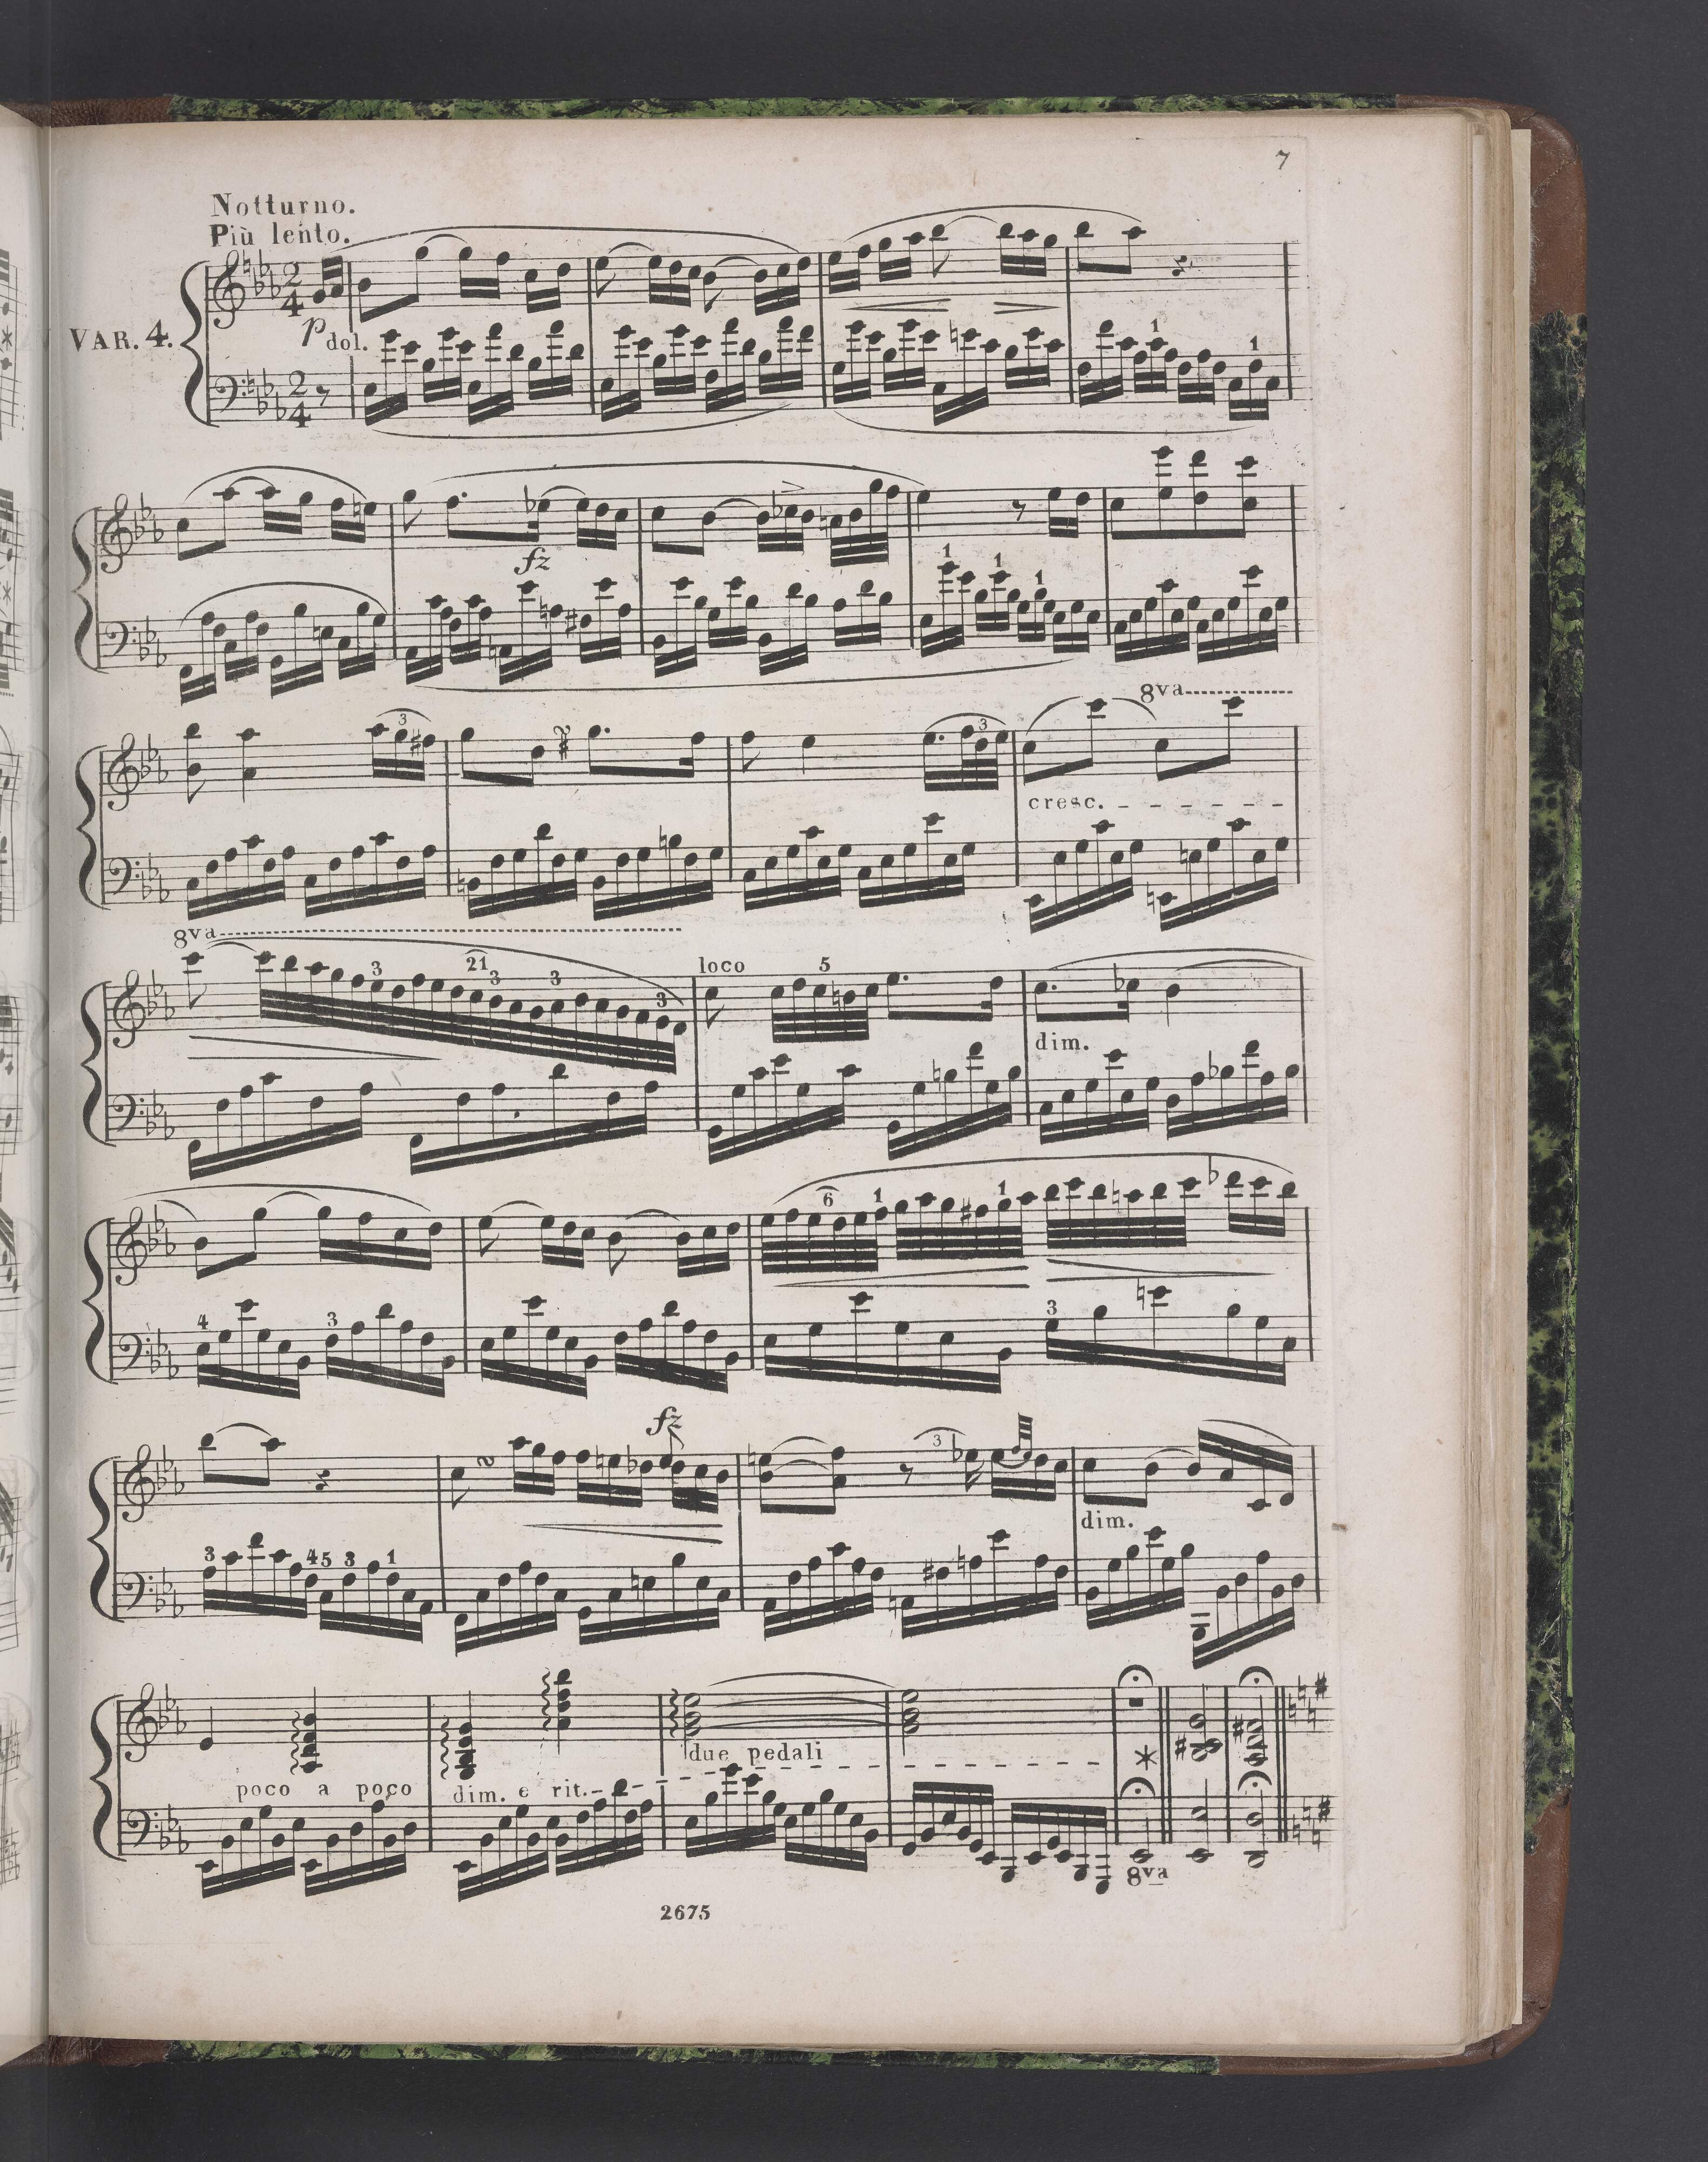 7
Notturno.
Più lento.
VAR. 4.
2 4
p dol.
2 4
1 1
fz
1 1 1
8va
3 3
cresc.
8va
3 21 3 3 3
loco
5
dim.
6 1 1
4 3 3
fz
3
dim.
3 4 5 3 1
due pedali
poco a poco dim. e rit.
8va
2675